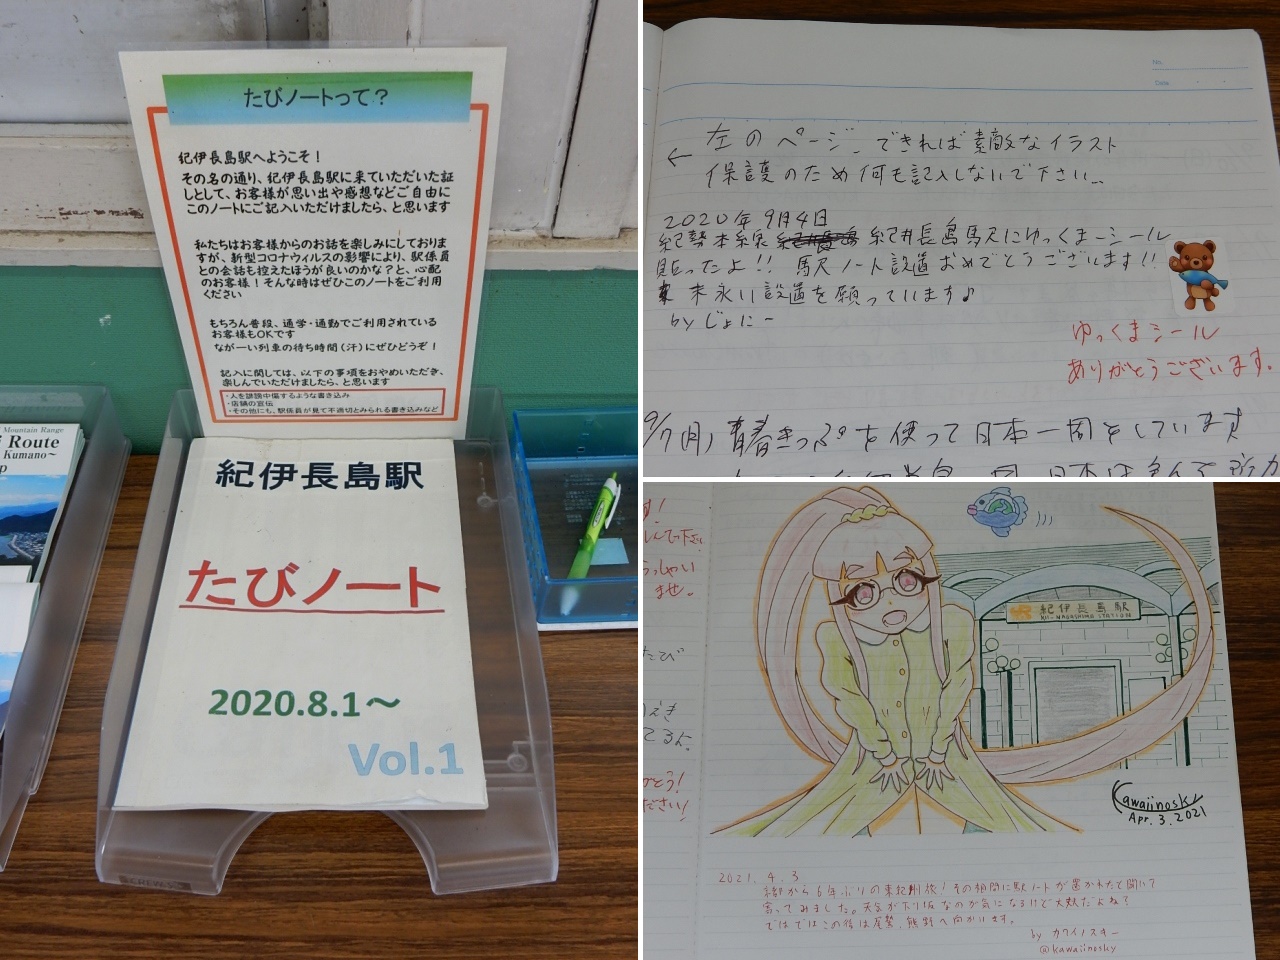 たびノートって？
紀伊長島駅へようこそ！
その名の通り、紀伊長島駅に来ていただいた証
しとして、お客様が思い出や感想などご自由に
このノートにご記入いただけましたら、と思います
私たちはお客様からのお話を楽しみにしておりま
すが、新型コロナウィルスの影響により、駅係員
との会話も控えたほうが良いのかな？と、心配
のお客様！そんな時はぜひこのノートをご利用
ください
もちろん普段、通学・通勤でご利用されている
お客様もOKです
なが一い列車の待ち時間（汗）にぜひどうぞ！
記入に関しては、以下の事項をおやめいただき、
楽しんでいただけましたら、と思います
・人を誹謗中傷するような書き込み
・店舗の宣伝
・その他にも、駅係員が見て不適切とみられる書き込みなど
紀伊長島駅
たびノート
2020.8.1～
Vol.1
Mountain Range
i Route
Kumano～
p
No.
Date
← 左のページ、できれば素敵なイラスト
保護のため何も記入しないで下さい
2020年9月4日
紀勢本線 紀伊長島駅にゆっくまーシール
貼ったよ!! 駅ノート設置おめでとうございます!!
末永い設置を願っています♪
by じょにー
ゆっくまシール
ありがとうございます。
9/7(月) 青春きっぷを使って日本一周をしています
す!
んで下さい
らっしゃい
ませ。
たび
えき
てるん。
がとう!
ださい!
紀伊長島駅
KII-NAGASHIMA STATION
Kawaiinosky
Apr.3.2021
2021.4.3
京都から6年ぶりの東紀州旅! その期間に駅ノートが置かれたと聞いて
寄ってみました。天気が下り坂なのが気になるけど大丈夫だよね?
ではではこの後は尾鷲、熊野へ向かいます。
by カワイノスキー
@kawaiinosky